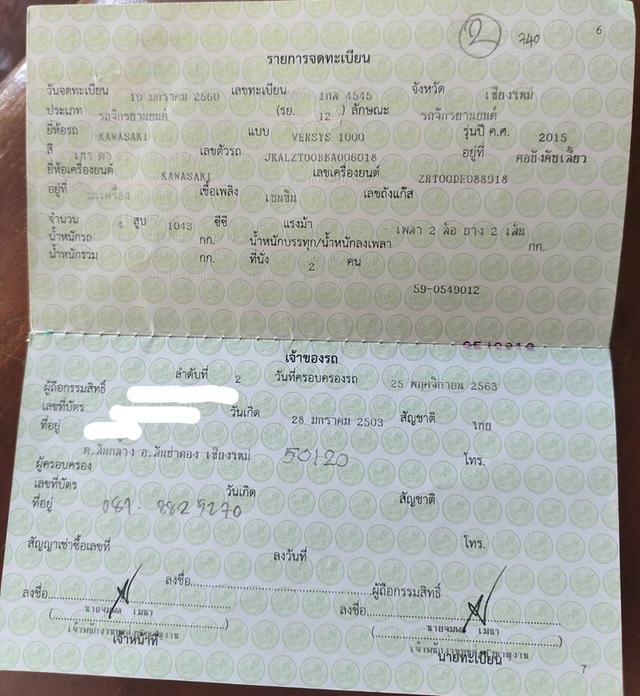 2 740 6
รายการจดทะเบียน
วันจดทะเบียน 19 มกราคม 2560 เลขทะเบียน 1กล 4545 จังหวัด เชียงใหม่
ประเภท รถจักรยานยนต์ (รย. 12 ) ลักษณะ รถจักรยานยนต์
ยี่ห้อรถ KAWASAKI แบบ VERSYS 1000 รุ่นปี ค.ศ. 2015
สี เทา ดำ เลขตัวรถ JKALZT00BBA006018 อยู่ที่ คอบังคับเลี้ยว
ยี่ห้อเครื่องยนต์ KAWASAKI เลขเครื่องยนต์ ZRT00DE088918
อยู่ที่ เชื้อเพลิง เบนซิน เลขถังแก๊ส
จำนวน 4 สูบ 1043 ซีซี แรงม้า - เพลา 2 ล้อ ยาง 2 เส้น
น้ำหนักรถ กก. น้ำหนักบรรทุก/น้ำหนักลงเพลา กก.
น้ำหนักรวม กก. ที่นั่ง 2 คน
59-0549012
เจ้าของรถ
ลำดับที่ 2 วันที่ครอบครองรถ 25 พฤศจิกายน 2563
ผู้ถือกรรมสิทธิ์
เลขที่บัตร วันเกิด 28 มกราคม 2503 สัญชาติ ไทย
ที่อยู่
ต.สันกลาง อ.สันป่าตอง เชียงใหม่ 50120 โทร.
ผู้ครอบครอง
เลขที่บัตร วันเกิด สัญชาติ
ที่อยู่ 081-8825270
สัญญาเช่าซื้อเลขที่ ลงวันที่ โทร.
ลงชื่อ ลงชื่อ ผู้ถือกรรมสิทธิ์
ลงชื่อ
นายจุมพล เมธา นายจุมพล เมธา
เจ้าหน้าที่ นายทะเบียน
7